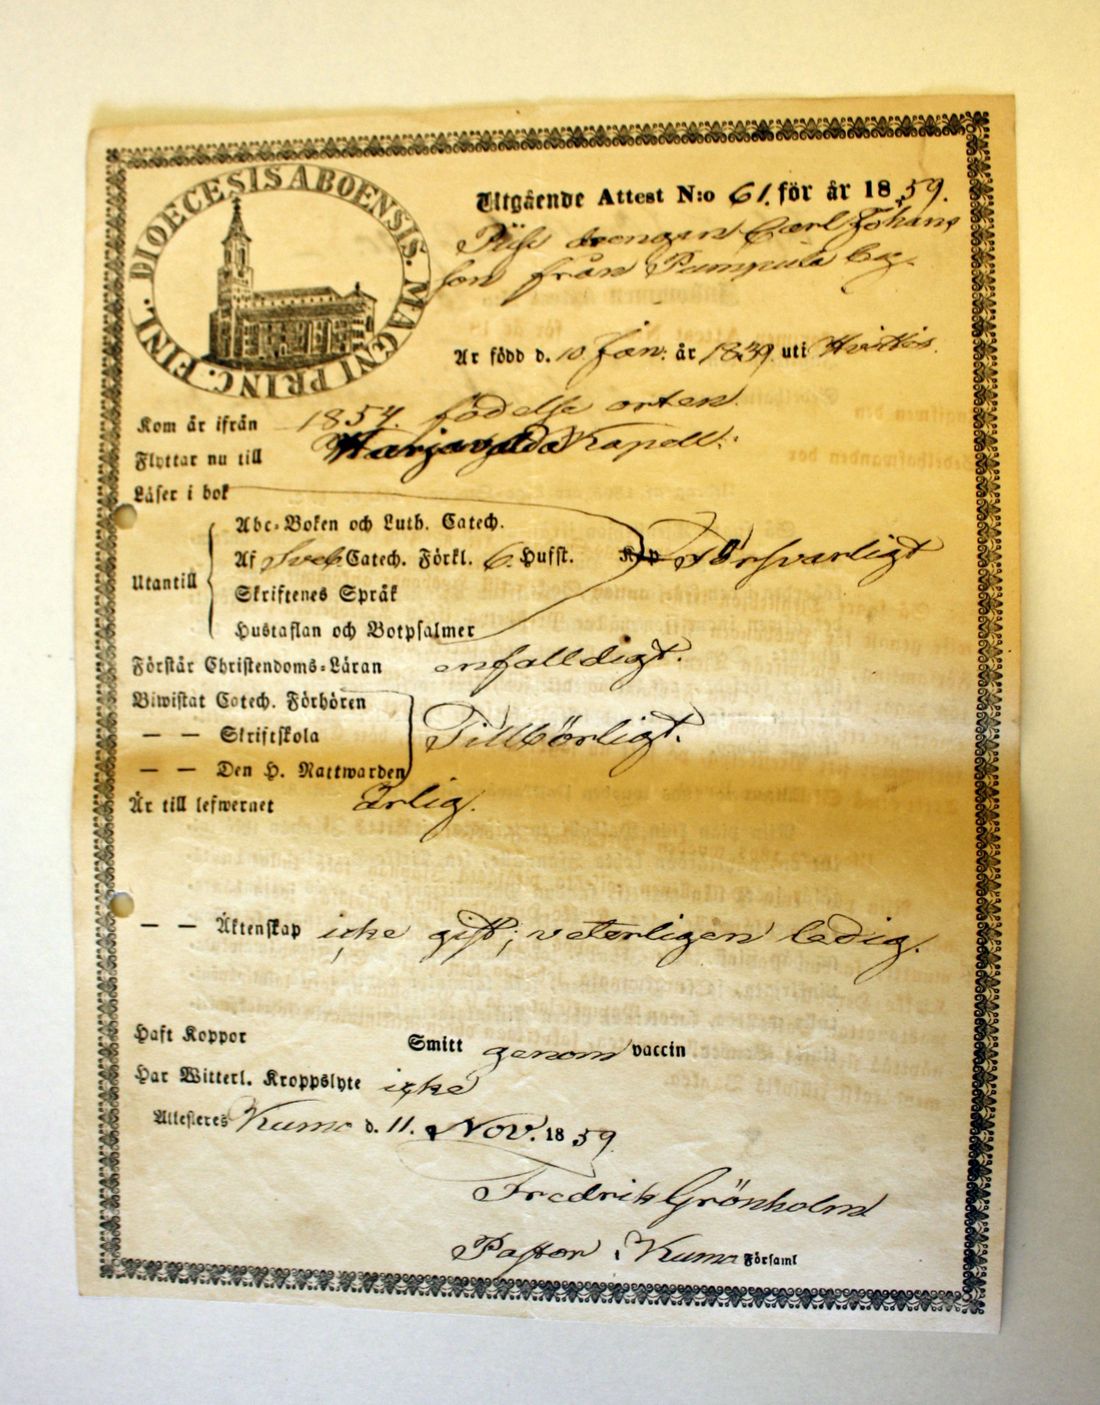 DIOECESIS ABOENSIS. MAGNI PRINC. FINL.
Utgående Attest N:o 61. för år 1859.
drengen Carl Johans
son från Pumpula by.
Är född d. 10 Jan: år 1839 uti Hvittis.
Kom år ifrån 1857. födelse orten.
Flyttar nu till Harjavalda Kapell.:
Läser i bok
Utantill
Abc-Boken och Luth. Catech.
Af Sveb. Catech. Förkl. 6. Hufst. Försvarligt
Skriftenes Språk
Hustaflan och Botpsalmer
Förstår Christendoms-Läran enfalldigt.
Biwistat Catech. Förhören
— — Skriftskola Tillbörligt.
— — Den H. Nattwarden
Är till lefwernet Ärlig.
— — Äktenskap icke gift; veterligen ledig.
Haft Koppor Smitt genom vaccin
Har Witterl. Kroppslyte icke
Attesteres Kumo d. 11. Nov. 1859.
Fredrik Grönholm
Pastor i Kumo Församl